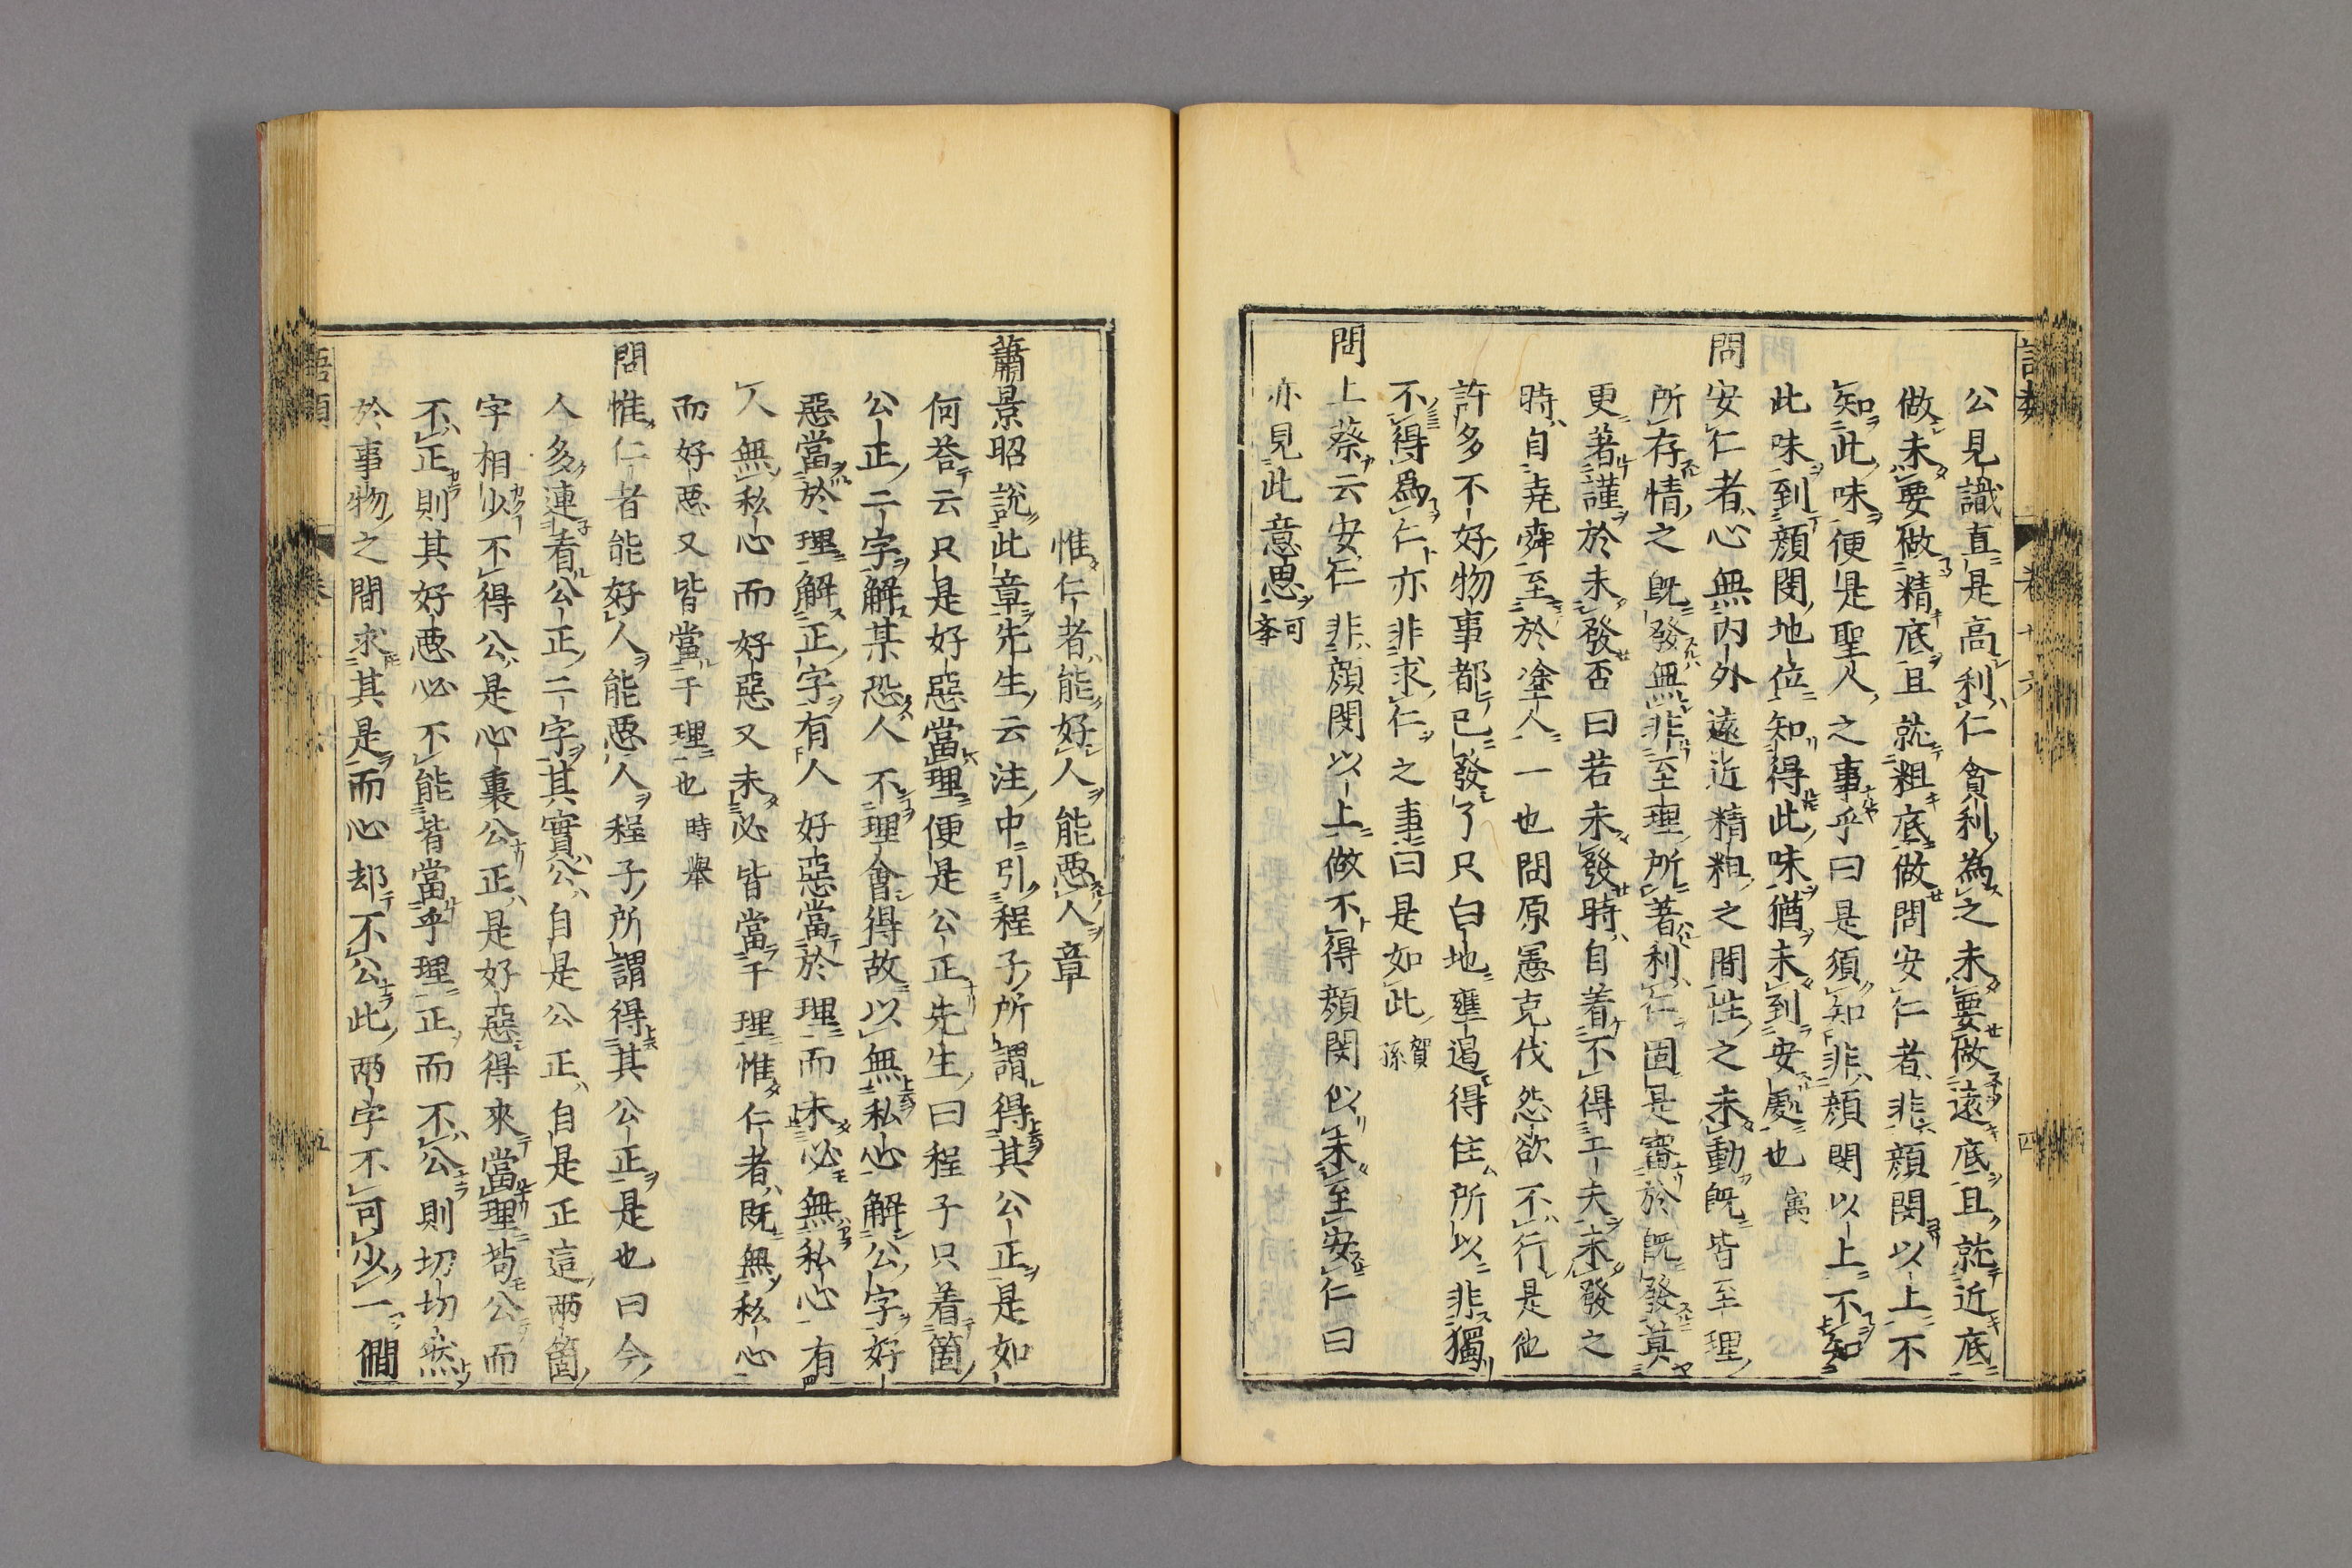 公見識直是高利仁貪利為之未要做遠底且就近底
做未要做精底且就粗底做問安仁者非顔閔以上不
知此味便是聖人之事乎曰是須知非顔閔以上不知
此味到顔閔地位知得此味猶未到安處也㝢
問安仁者心無内外遠近精粗之間性之未動既皆至理
所存情之既發無非至理所著利仁固是審於既發莫
更著謹於未發否曰若未發時自着不得工夫未發之
時自堯舜至於塗人一也問原憲克伐怨欲不行是他
許多不好物事都已發了只白地壅遏得住所以非獨
不得爲仁亦非求仁之事曰是如此賀孫
問上蔡云安仁非顔閔以上做不得顔閔似未至安仁曰
亦見此意思可學
語類
卷十六
四
惟仁者能好人能悪人章
蕭景昭說此章先生云注中引程子所謂得其公正是如
何荅云只是好惡當理便是公正先生曰程子只着箇
公正二字解某恐人不理會得故以無私心解公字好
惡當於理解正字有人好惡當於理而未必無私心有
人無私心而好惡又未必皆當于理惟仁者既無私心
而好悪又皆當于理也時舉
問惟仁者能好人能悪人程子所謂得其公正是也曰今
人多連看公正二字其實公自是公正自是正這兩箇
字相少不得公是心裏公正是好惡得來當理苟公而
不正則其好悪必不能皆當乎理正而不公則切切然
於事物之間求其是而心却不公此兩字不可少一僩
語類
五